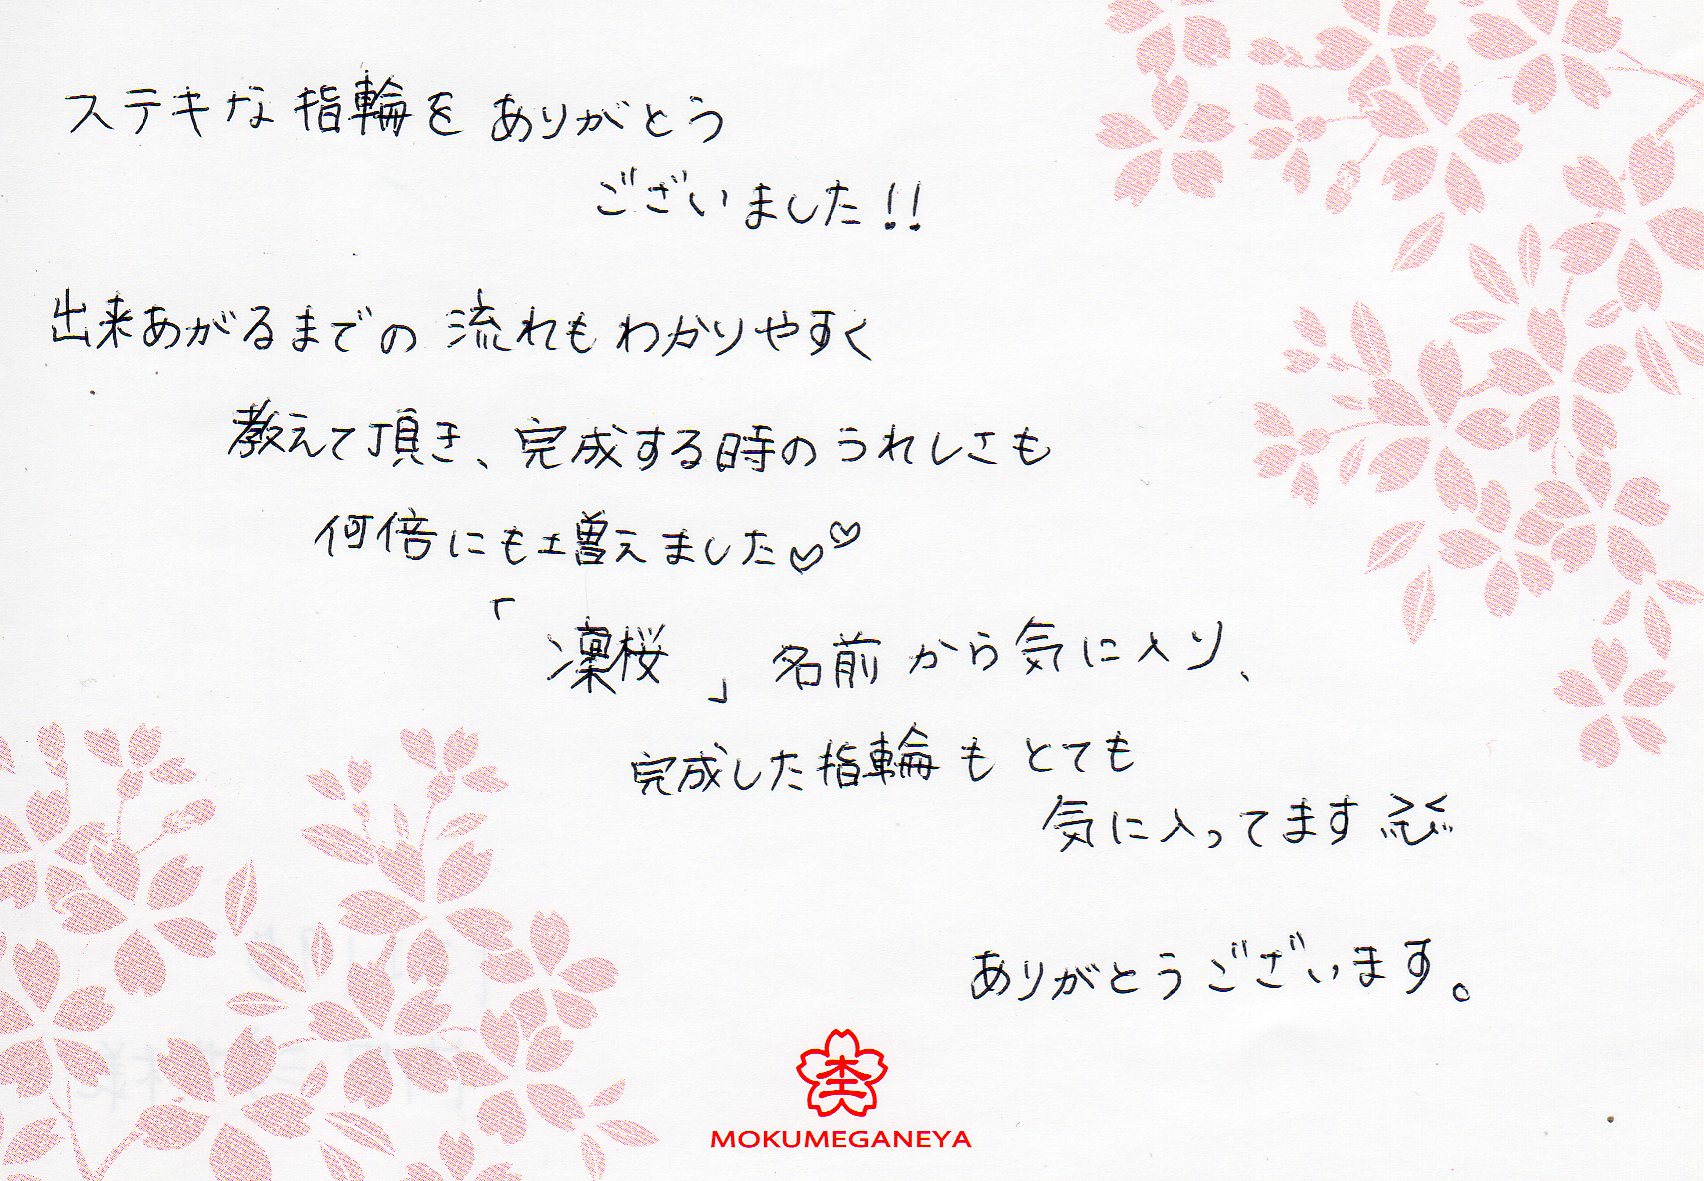 ステキな指輪をありがとう
ございました!!
出来あがるまでの流れもわかりやすく
教えて頂き、完成する時のうれしさも
何倍にも増えました♡♡
「凛桜」名前から気に入り、
完成した指輪もとても
気に入ってます
ありがとうございます。
MOKUMEGANEYA